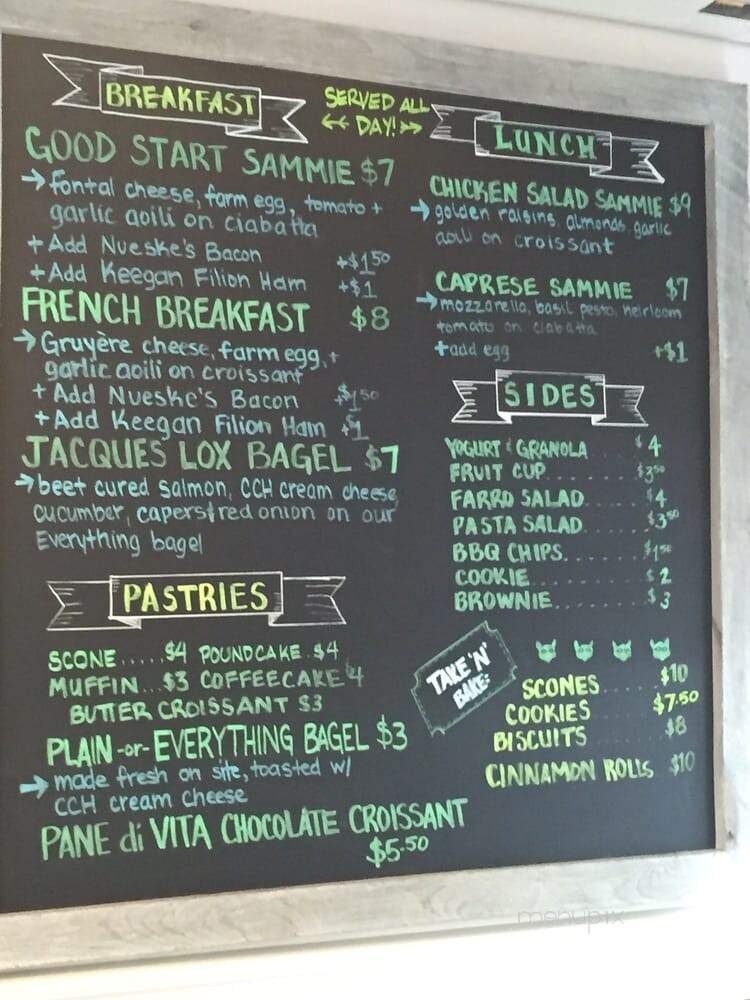 BREAKFAST
SERVED ALL
DAY!
GOOD START SAMMIE $7
fontal cheese, farm egg, tomato +
garlic aoili on ciabatta
+ Add Nueske's Bacon +$1.50
+ Add Keegan Filion Ham +$1
FRENCH BREAKFAST $8
Gruyère cheese, farm egg, +
garlic aoili on croissant
+ Add Nueske's Bacon $1.50
+ Add Keegan Filion Ham +$1
JACQUES LOX BAGEL $7
beet cured salmon, CCH cream cheese,
cucumber, capers & red onion on our
Everything bagel
PASTRIES
SCONE..... $4 POUNDCAKE.. $4
MUFFIN... $3 COFFEECAKE $4
BUTTER CROISSANT $3
PLAIN -or- EVERYTHING BAGEL $3
made fresh on site, toasted w/
CCH cream cheese
PANE di VITA CHOCOLATE CROISSANT
$5.50
LUNCH
CHICKEN SALAD SAMMIE $9
golden raisins, almonds, garlic
aoili on croissant
CAPRESE SAMMIE $7
mozzarella, basil pesto, heirloom
tomato on ciabatta
+add egg +$1
SIDES
YOGURT & GRANOLA $4
FRUIT CUP..... $3.50
FARRO SALAD..... $4
PASTA SALAD..... $3.50
BBQ CHIPS....... $1.50
COOKIE.......... $2
BROWNIE........ $3
TAKE 'N'
BAKE:
SCONES..... $10
COOKIES..... $7.50
BISCUITS..... $8
CINNAMON ROLLS $10
menupix